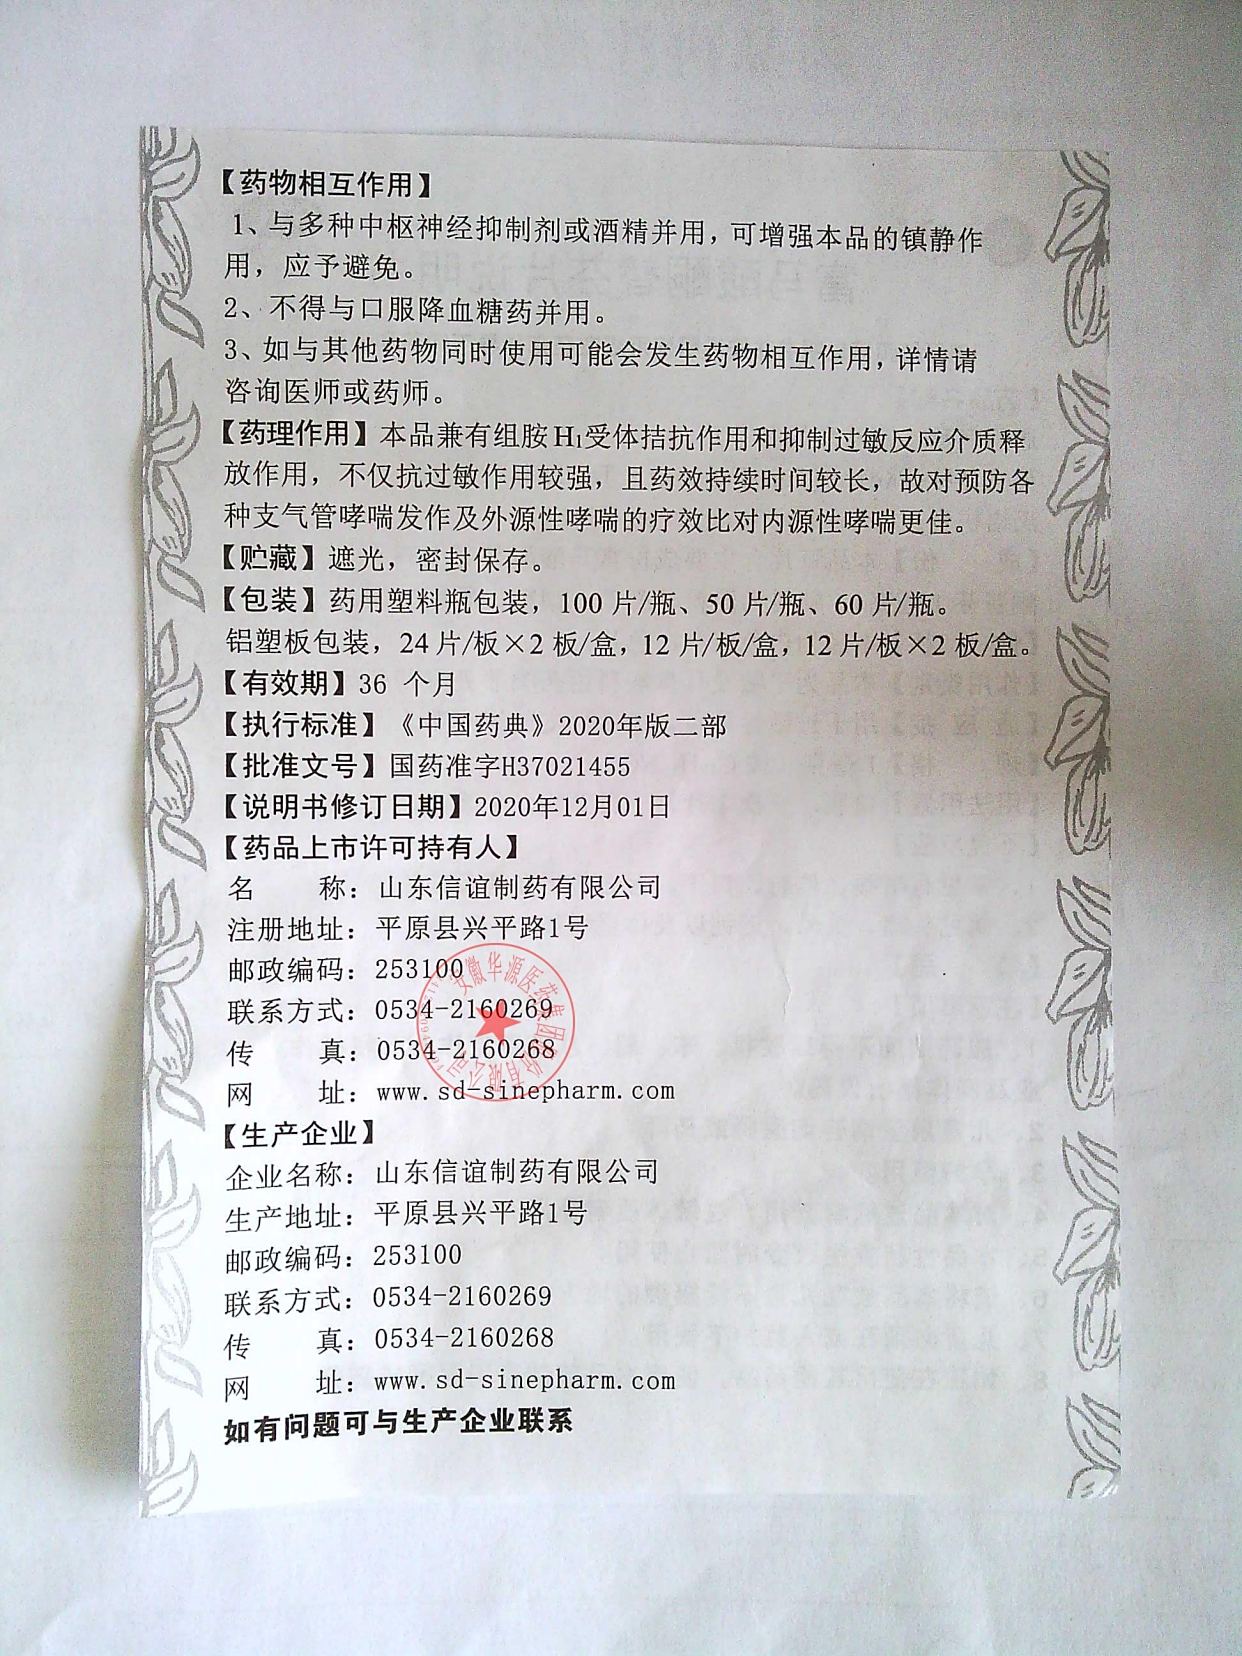 【药物相互作用】
1、与多种中枢神经抑制剂或酒精并用，可增强本品的镇静作
用，应予避免。
2、不得与口服降血糖药并用。
3、如与其他药物同时使用可能会发生药物相互作用，详情请
咨询医师或药师。
【药理作用】本品兼有组胺H₁受体拮抗作用和抑制过敏反应介质释
放作用，不仅抗过敏作用较强，且药效持续时间较长，故对预防各
种支气管哮喘发作及外源性哮喘的疗效比对内源性哮喘更佳。
【贮藏】遮光，密封保存。
【包装】药用塑料瓶包装，100 片/瓶、50 片/瓶、60 片/瓶。
铝塑板包装，24 片/板×2 板/盒，12 片/板/盒，12 片/板×2 板/盒。
【有效期】36 个月
【执行标准】《中国药典》2020年版二部
【批准文号】国药准字H37021455
【说明书修订日期】2020年12月01日
【药品上市许可持有人】
名 称：山东信谊制药有限公司
注册地址：平原县兴平路1号
邮政编码：253100
联系方式：0534-2160269
传 真：0534-2160268
网 址：www.sd-sinepharm.com
安徽华源医药集团股份有限公司
【生产企业】
企业名称：山东信谊制药有限公司
生产地址：平原县兴平路1号
邮政编码：253100
联系方式：0534-2160269
传 真：0534-2160268
网 址：www.sd-sinepharm.com
如有问题可与生产企业联系